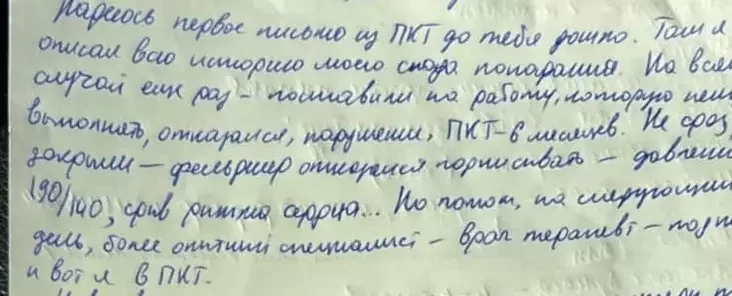 Надеюсь первое письмо из ПКТ до тебя дошло. Там я
описал всю историю моего сюда попадания. На всяк
случай еще раз - поставили на работу, которую нель
выполнять, отказался, нарушение, ПКТ-6 месяцев. Не сраз
закрыли - фельдшер отказался подписывать - давлени
190/140, срыв ритма сердца... Но потом, на следующий
день, более опытный специалист - врач терапевт - подп
и вот я в ПКТ.